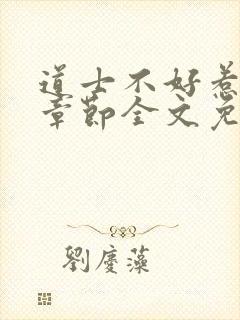 道士不好惹
章节全文免
劉慶藻